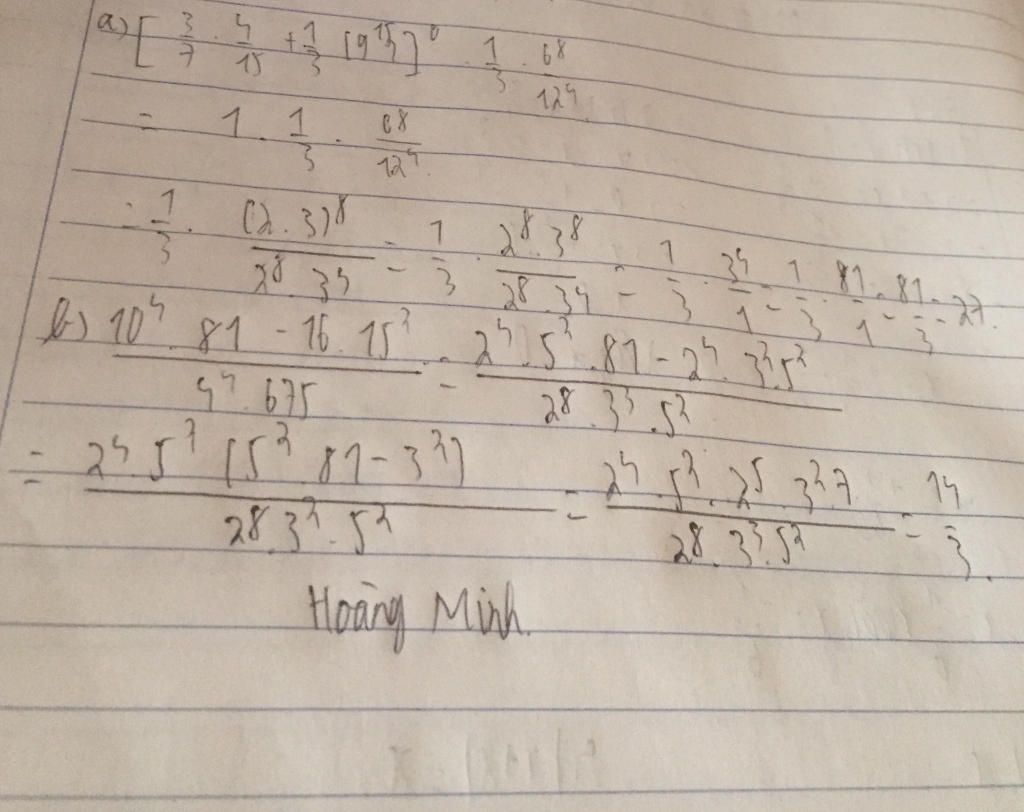 a) [3/7 . 4/15 + 1/3 (9^15)]^0 . 1/3 . 6^8/12^4
= 1 . 1/3 . 6^8/12^4.
= 1/3 . (2.3)^8/2^8.3^4 = 1/3 . 2^8.3^8/2^8.3^4 = 1/3 . 3^4/1 = 1/3 . 81/1 = 81/3 = 27.
b) 10^4.81 - 16.15^2/4^4.675 = 2^4.5^2.81 - 2^4.3^2.5^2/2^8.3^3.5^2
= 2^4.5^2 (5^2.81 - 3^2)/2^8.3^3.5^2 = 2^4.5^2.2^5.3^2.7/2^8.3^3.5^2 = 14/3.
Hoàng Minh.